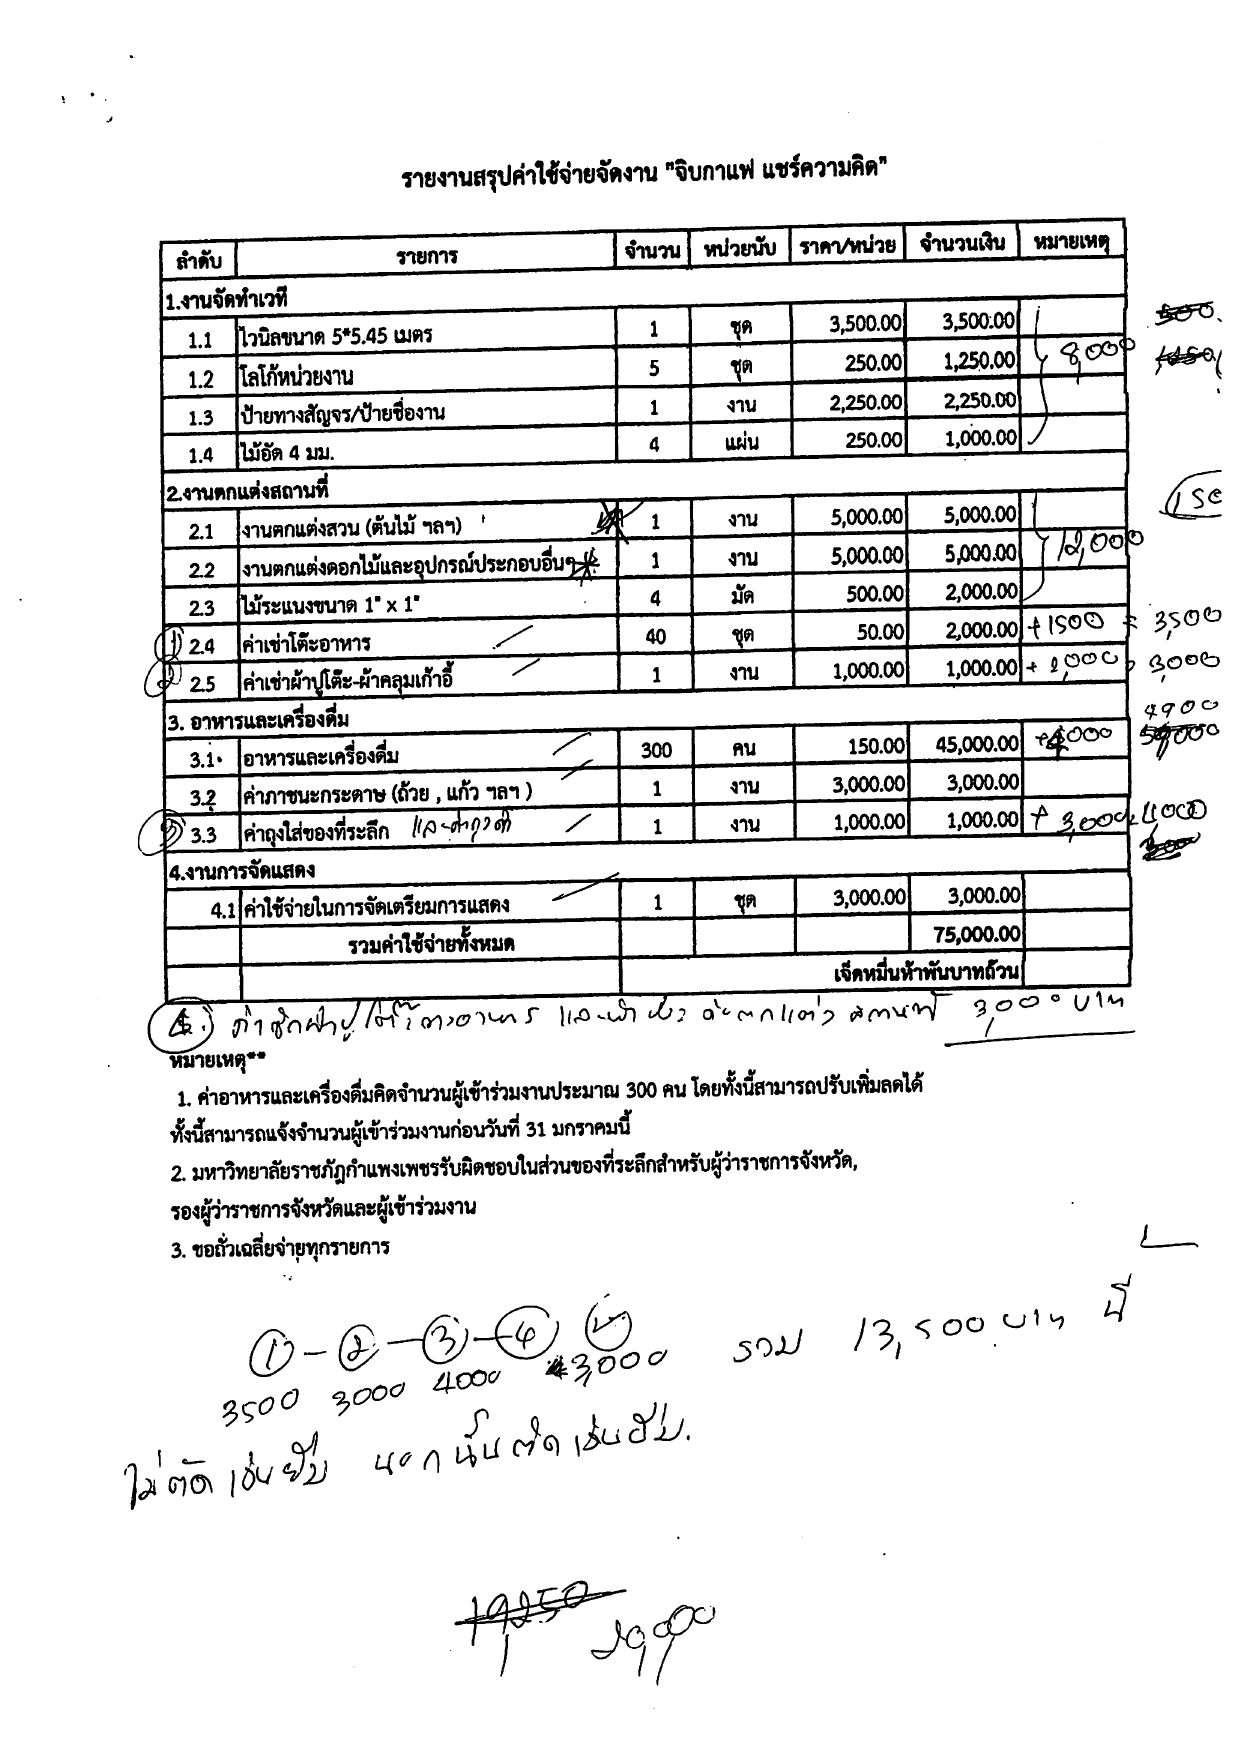 รายงานสรุปค่าใช้จ่ายจัดงาน "จิบกาแฟ แชร์ความคิด"
ลำดับ รายการ จำนวน หน่วยนับ ราคา/หน่วย จำนวนเงิน หมายเหตุ
1.งานจัดทำเวที
1.1 ไวนิลขนาด 5*5.45 เมตร 1 ชุด 3,500.00 3,500.00
1.2 โลโก้หน่วยงาน 5 ชุด 250.00 1,250.00 8,000
1.3 ป้ายทางสัญจร/ป้ายชื่องาน 1 งาน 2,250.00 2,250.00
1.4 ไม้อัด 4 มม. 4 แผ่น 250.00 1,000.00
2.งานตกแต่งสถานที่
2.1 งานตกแต่งสวน (ต้นไม้ ฯลฯ) 1 งาน 5,000.00 5,000.00
2.2 งานตกแต่งดอกไม้และอุปกรณ์ประกอบอื่นๆ 1 งาน 5,000.00 5,000.00 12,000
2.3 ไม้ระแนงขนาด 1" x 1" 4 มัด 500.00 2,000.00
1 2.4 ค่าเช่าโต๊ะอาหาร 40 ชุด 50.00 2,000.00 +1500 = 3,500
2 2.5 ค่าเช่าผ้าปูโต๊ะ-ผ้าคลุมเก้าอี้ 1 งาน 1,000.00 1,000.00 + 2,000 3,000
3. อาหารและเครื่องดื่ม 4900
3.1 อาหารและเครื่องดื่ม 300 คน 150.00 45,000.00 +4000
3.2 ค่าภาชนะกระดาษ (ถ้วย , แก้ว ฯลฯ ) 1 งาน 3,000.00 3,000.00
3 3.3 ค่าถุงใส่ของที่ระลึก 1 งาน 1,000.00 1,000.00 + 3,000 4000
4.งานการจัดแสดง
4.1 ค่าใช้จ่ายในการจัดเตรียมการแสดง 1 ชุด 3,000.00 3,000.00
รวมค่าใช้จ่ายทั้งหมด 75,000.00
เจ็ดหมื่นห้าพันบาทถ้วน
4. ค่าซักผ้าปูโต๊ะอาหาร และผ้า ตกแต่ง สถานที่ 3,000 บาท
หมายเหตุ**
1. ค่าอาหารและเครื่องดื่มคิดจำนวนผู้เข้าร่วมงานประมาณ 300 คน โดยทั้งนี้สามารถปรับเพิ่มลดได้
ทั้งนี้สามารถแจ้งจำนวนผู้เข้าร่วมงานก่อนวันที่ 31 มกราคมนี้
2. มหาวิทยาลัยราชภัฏกำแพงเพชรรับผิดชอบในส่วนของที่ระลึกสำหรับผู้ว่าราชการจังหวัด,
รองผู้ว่าราชการจังหวัดและผู้เข้าร่วมงาน
3. ขอถั่วเฉลี่ยจ่ายทุกรายการ
1 - 2 - 3 - 4 รวม 13,500 บาท นี้
3500 3000 4000 3,000
ไม่ตัดเงินยืม นอกนั้นตัดเงินยืม.
19,250 20,000